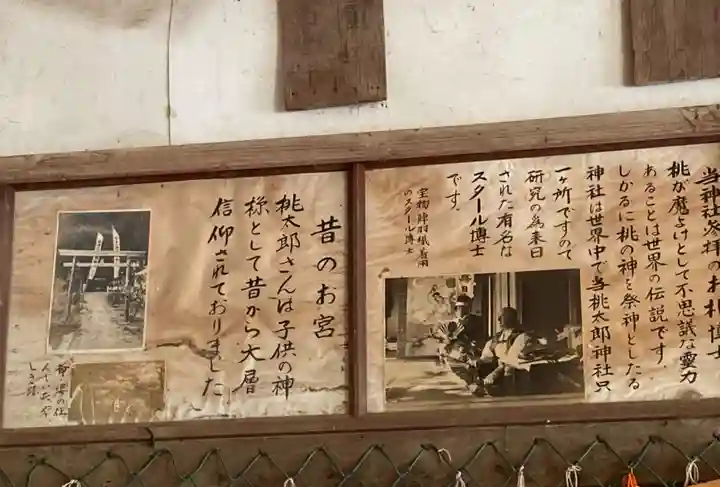 昔のお宮
桃太郎さんは子供の神
様として昔から大層
信仰されておりました
桃が魔よけとして不思議な霊力
あることは世界の伝説です．
しかるに桃の神を祭神としたる
神社は世界中で当桃太郎神社只
一ヶ所ですので
研究の為来日
された有名な
スタール博士
です．
宝物陣羽織着用
のスタール博士